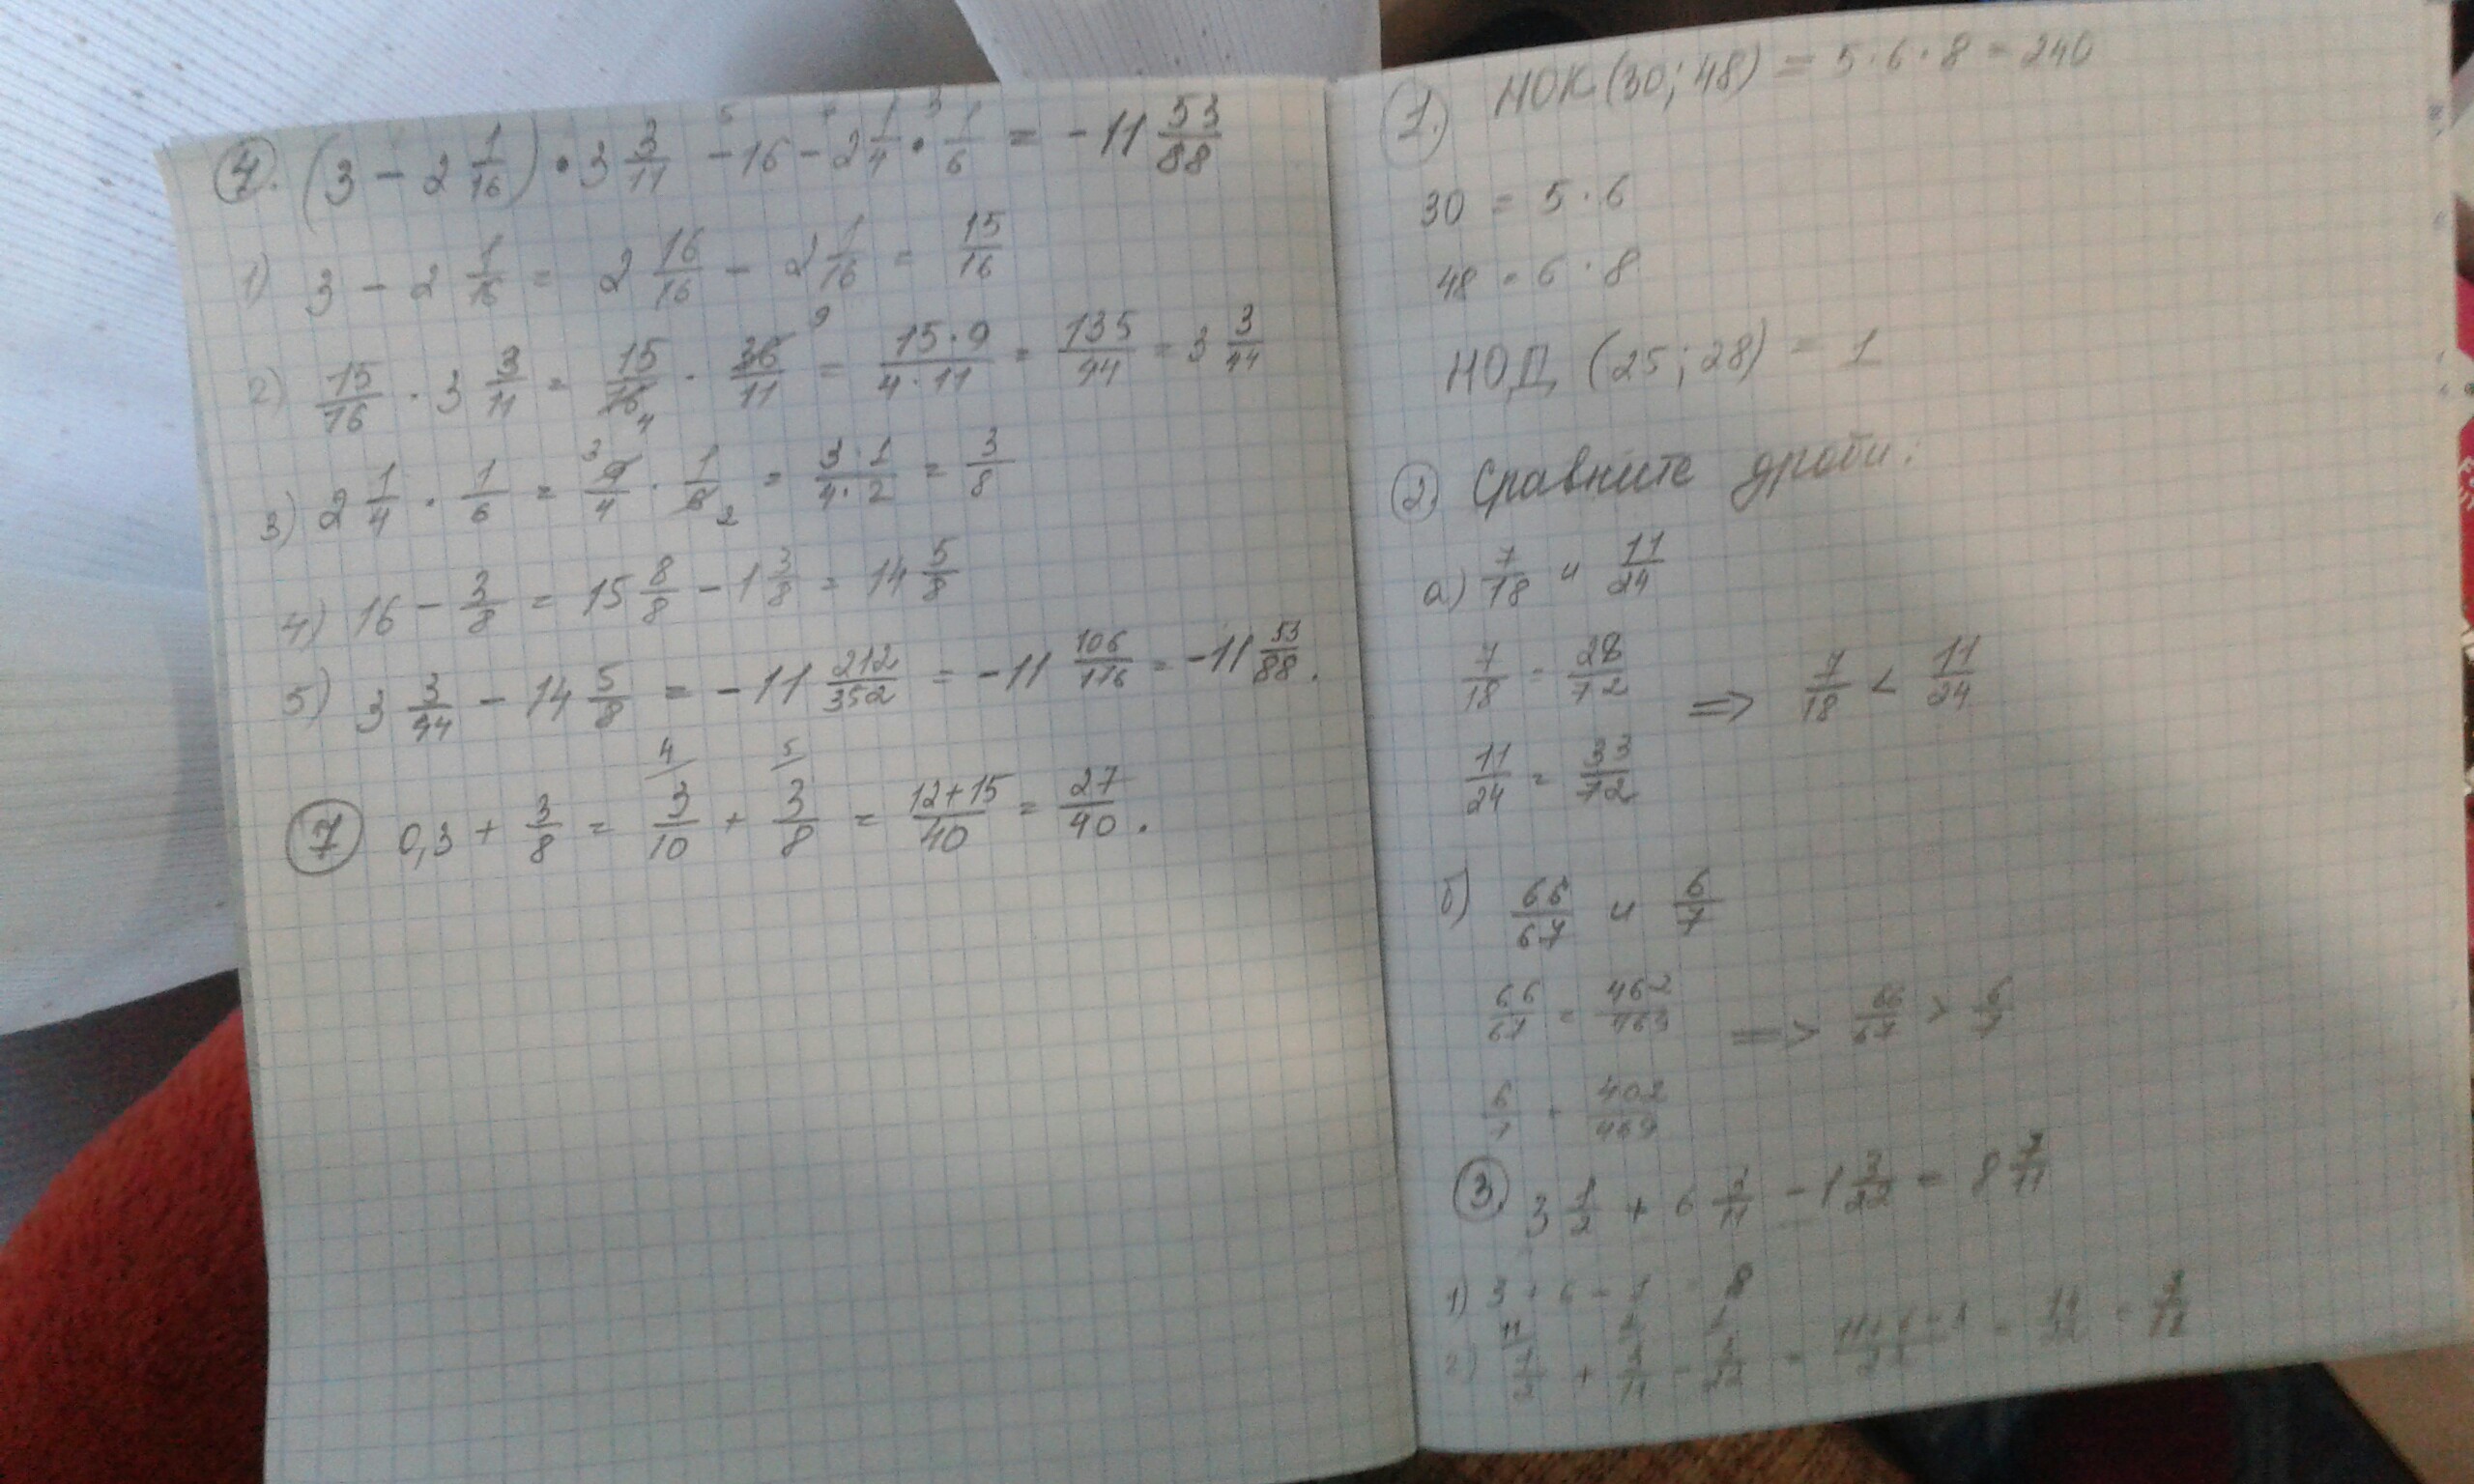 4. (3 - 2 1/16) • 3 3/11 - 16 - 2 1/4 • 1/6 = -11 53/88
1) 3 - 2 1/16 = 2 16/16 - 2 1/16 = 15/16
2) 15/16 · 3 3/11 = 15/16 4 · 36/11 9 = 15·9/4·11 = 135/44 = 3 3/44
3) 2 1/4 · 1/6 = 3 9/4 · 1/6 2 = 3·1/4·2 = 3/8
4) 16 - 3/8 = 15 8/8 - 1 3/8 = 14 5/8
5) 3 3/44 - 14 5/8 = -11 212/352 = -11 106/176 = -11 53/88.
7 0,3 + 3/8 = 4/ 3/10 + 5/ 3/8 = 12+15/40 = 27/40.
1. НОК (30; 48) = 5·6·8 = 240
30 = 5·6
48 = 6·8
НОД (25; 28) = 1
2) Сравните дроби:
а) 7/18 и 11/24
7/18 = 28/72
=> 7/18 < 11/24
11/24 = 33/72
б) 66/67 и 6/7
66/67 = 462/469
=> 66/67 > 6/7
6/7 = 402/469
3. 3 1/2 + 6 2/11 - 1 3/22 = 8
1) 3 + 6 - 1 = 8